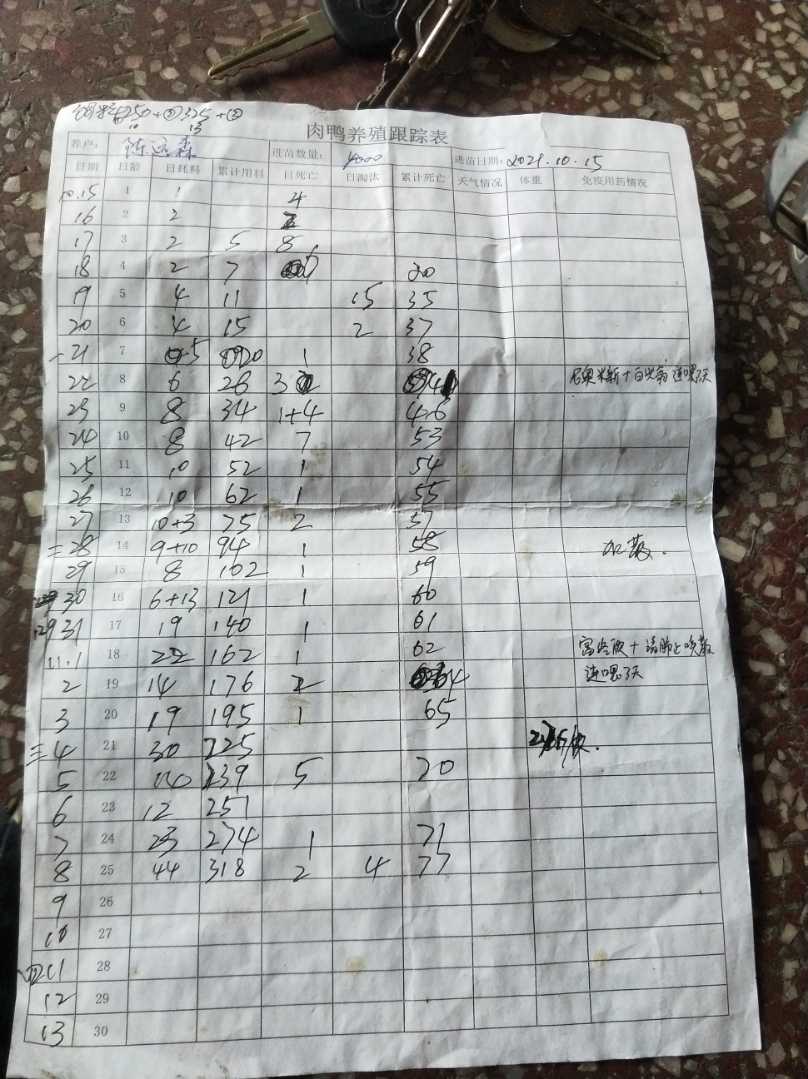 饲料①250+②325+②
10 13
肉鸭养殖跟踪表
养户: 陈 森 进苗数量: 4000 进苗日期: 2021.10.15
日期 日龄 日耗料 累计用料 日死亡 日淘汰 累计死亡 天气情况 体重 免疫用药情况
10.15 1 1 4
16 2 2 2
17 3 2 5 8
18 4 2 7 20
19 5 4 11 15 35
20 6 4 15 2 37
一21 7 5 20 1 38
22 8 6 26 3 41 连喂3天
23 9 8 34 1+4 46
24 10 8 42 7 53
25 11 10 52 1 54
26 12 10 62 1 55
27 13 10+3 75 2 57
二28 14 9+10 94 1 58 加
29 15 8 102 1 59
30 16 6+13 121 1 60
31 17 19 140 1 61
11.1 18 22 162 1 62
2 19 14 176 2 64 连喂3天
3 20 19 195 1 65
三4 21 30 225
5 22 14 239 5 70
6 23 12 251
7 24 23 274 1 71
8 25 44 318 2 4 77
9 26
10 27
11 28
12 29
13 30